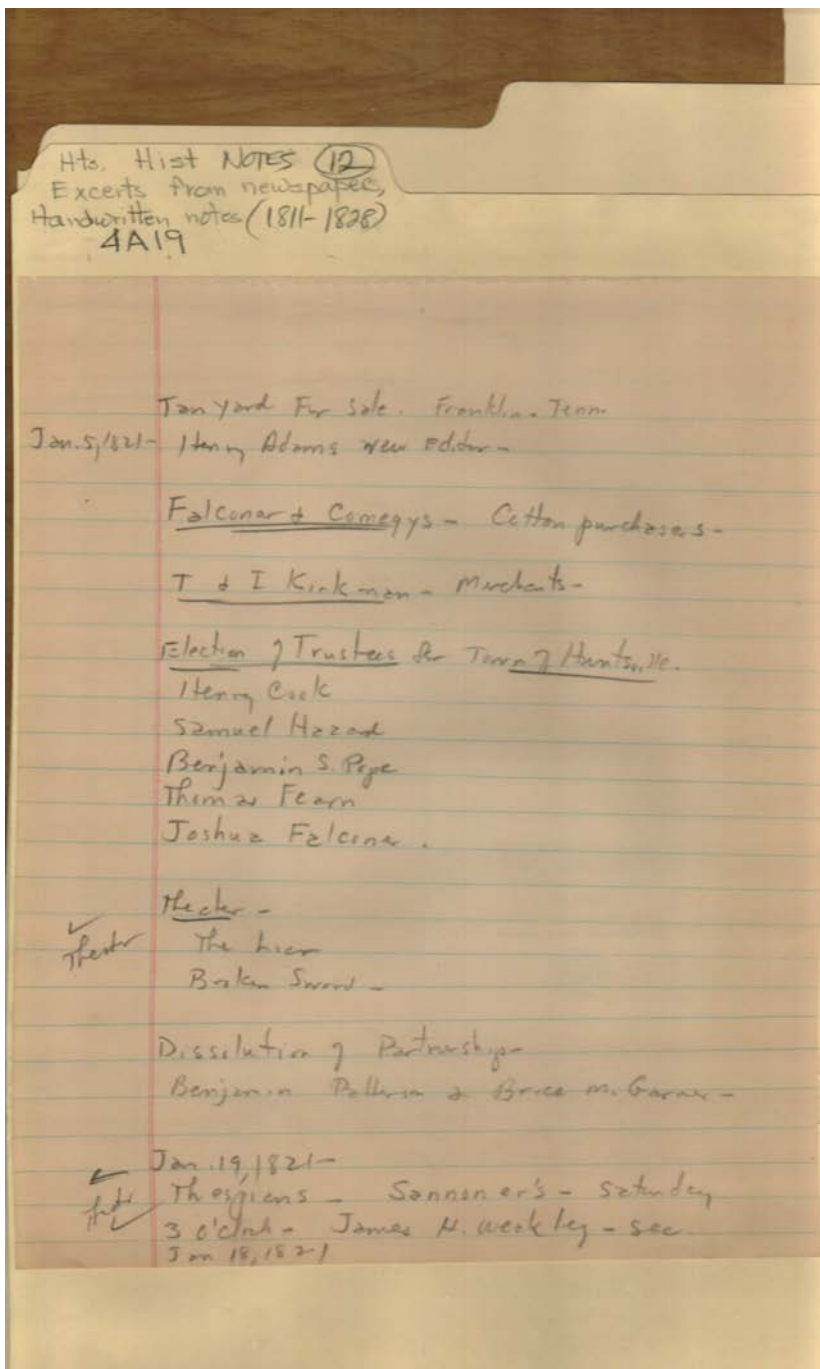 Hts. Hist NOTES (12)
Excerts from newspapers,
Handwritten notes (1811-1828)
4A19
Tan yard For Sale. Franklin. Tenn.
Jan. 5, 1821- Henry Adams new Editor-
Falconar & Comegys - Cotton purchasers -
T & I Kirkman - Merchants-
Election of Trustees for Town of Huntsville.
Henry Cook
Samuel Hazard
Benjamin S. Pope
Thomas Fearn
Joshua Falconar.
Theater -
Theater The Liar
Broken Sword -
Dissolution of Partnership-
Benjamin Patterson & Brice M. Garner-
Jan. 19, 1821-
Theater Thespians - Sannoner's - Saturday
3 o'clock - James H. Weakley - sec.
Jan 18, 1821